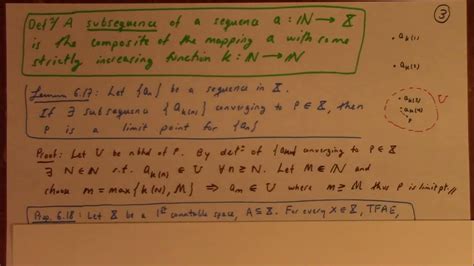 ③
Defⁿ/ A subsequence of a sequence a : ℕ → X
is the composite of the mapping a with some
strictly increasing function k : ℕ → ℕ
• a_k(1)
• a_k(2)
Lemma 6.17: Let {a_n} be a sequence in X.
If ∃ subsequence {a_k(n)} converging to p ∈ X, then
p is a limit point for {a_n}
U
p
Proof: Let U be nbhd of p. By defⁿ of {a_k(n)} converging to p ∈ X
∃ N ∈ ℕ s.t. a_k(n) ∈ U ∀ n ≥ N. Let M ∈ ℕ and
choose m = max{k(N), M} ⇒ a_m ∈ U where m ≥ M thus p is limit pt //
Prop. 6.18: Let X be a 1st countable space, A ⊆ X. For every x ∈ X, TFAE,